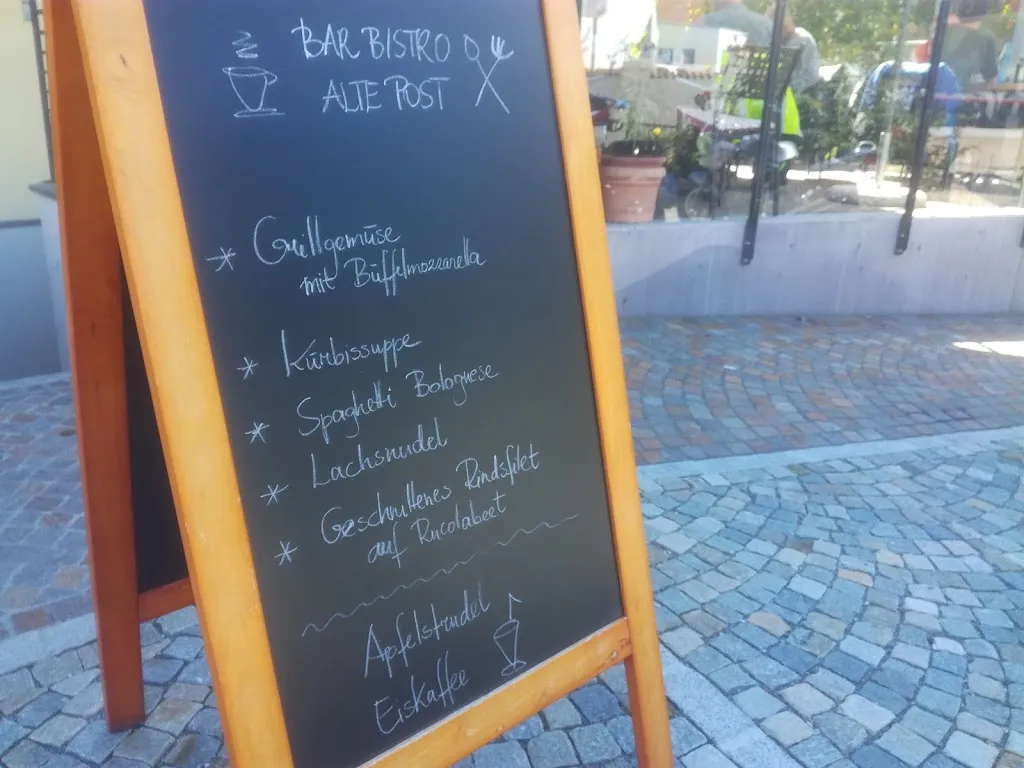 BAR BISTRO
ALTE POST
* Grillgemüse
mit Büffelmozzarella
* Kürbissuppe
* Spaghetti Bolognese
* Lachsnudel
* Geschnittenes Rindsfilet
auf Rucolabeet
Apfelstrudel
Eiskaffee